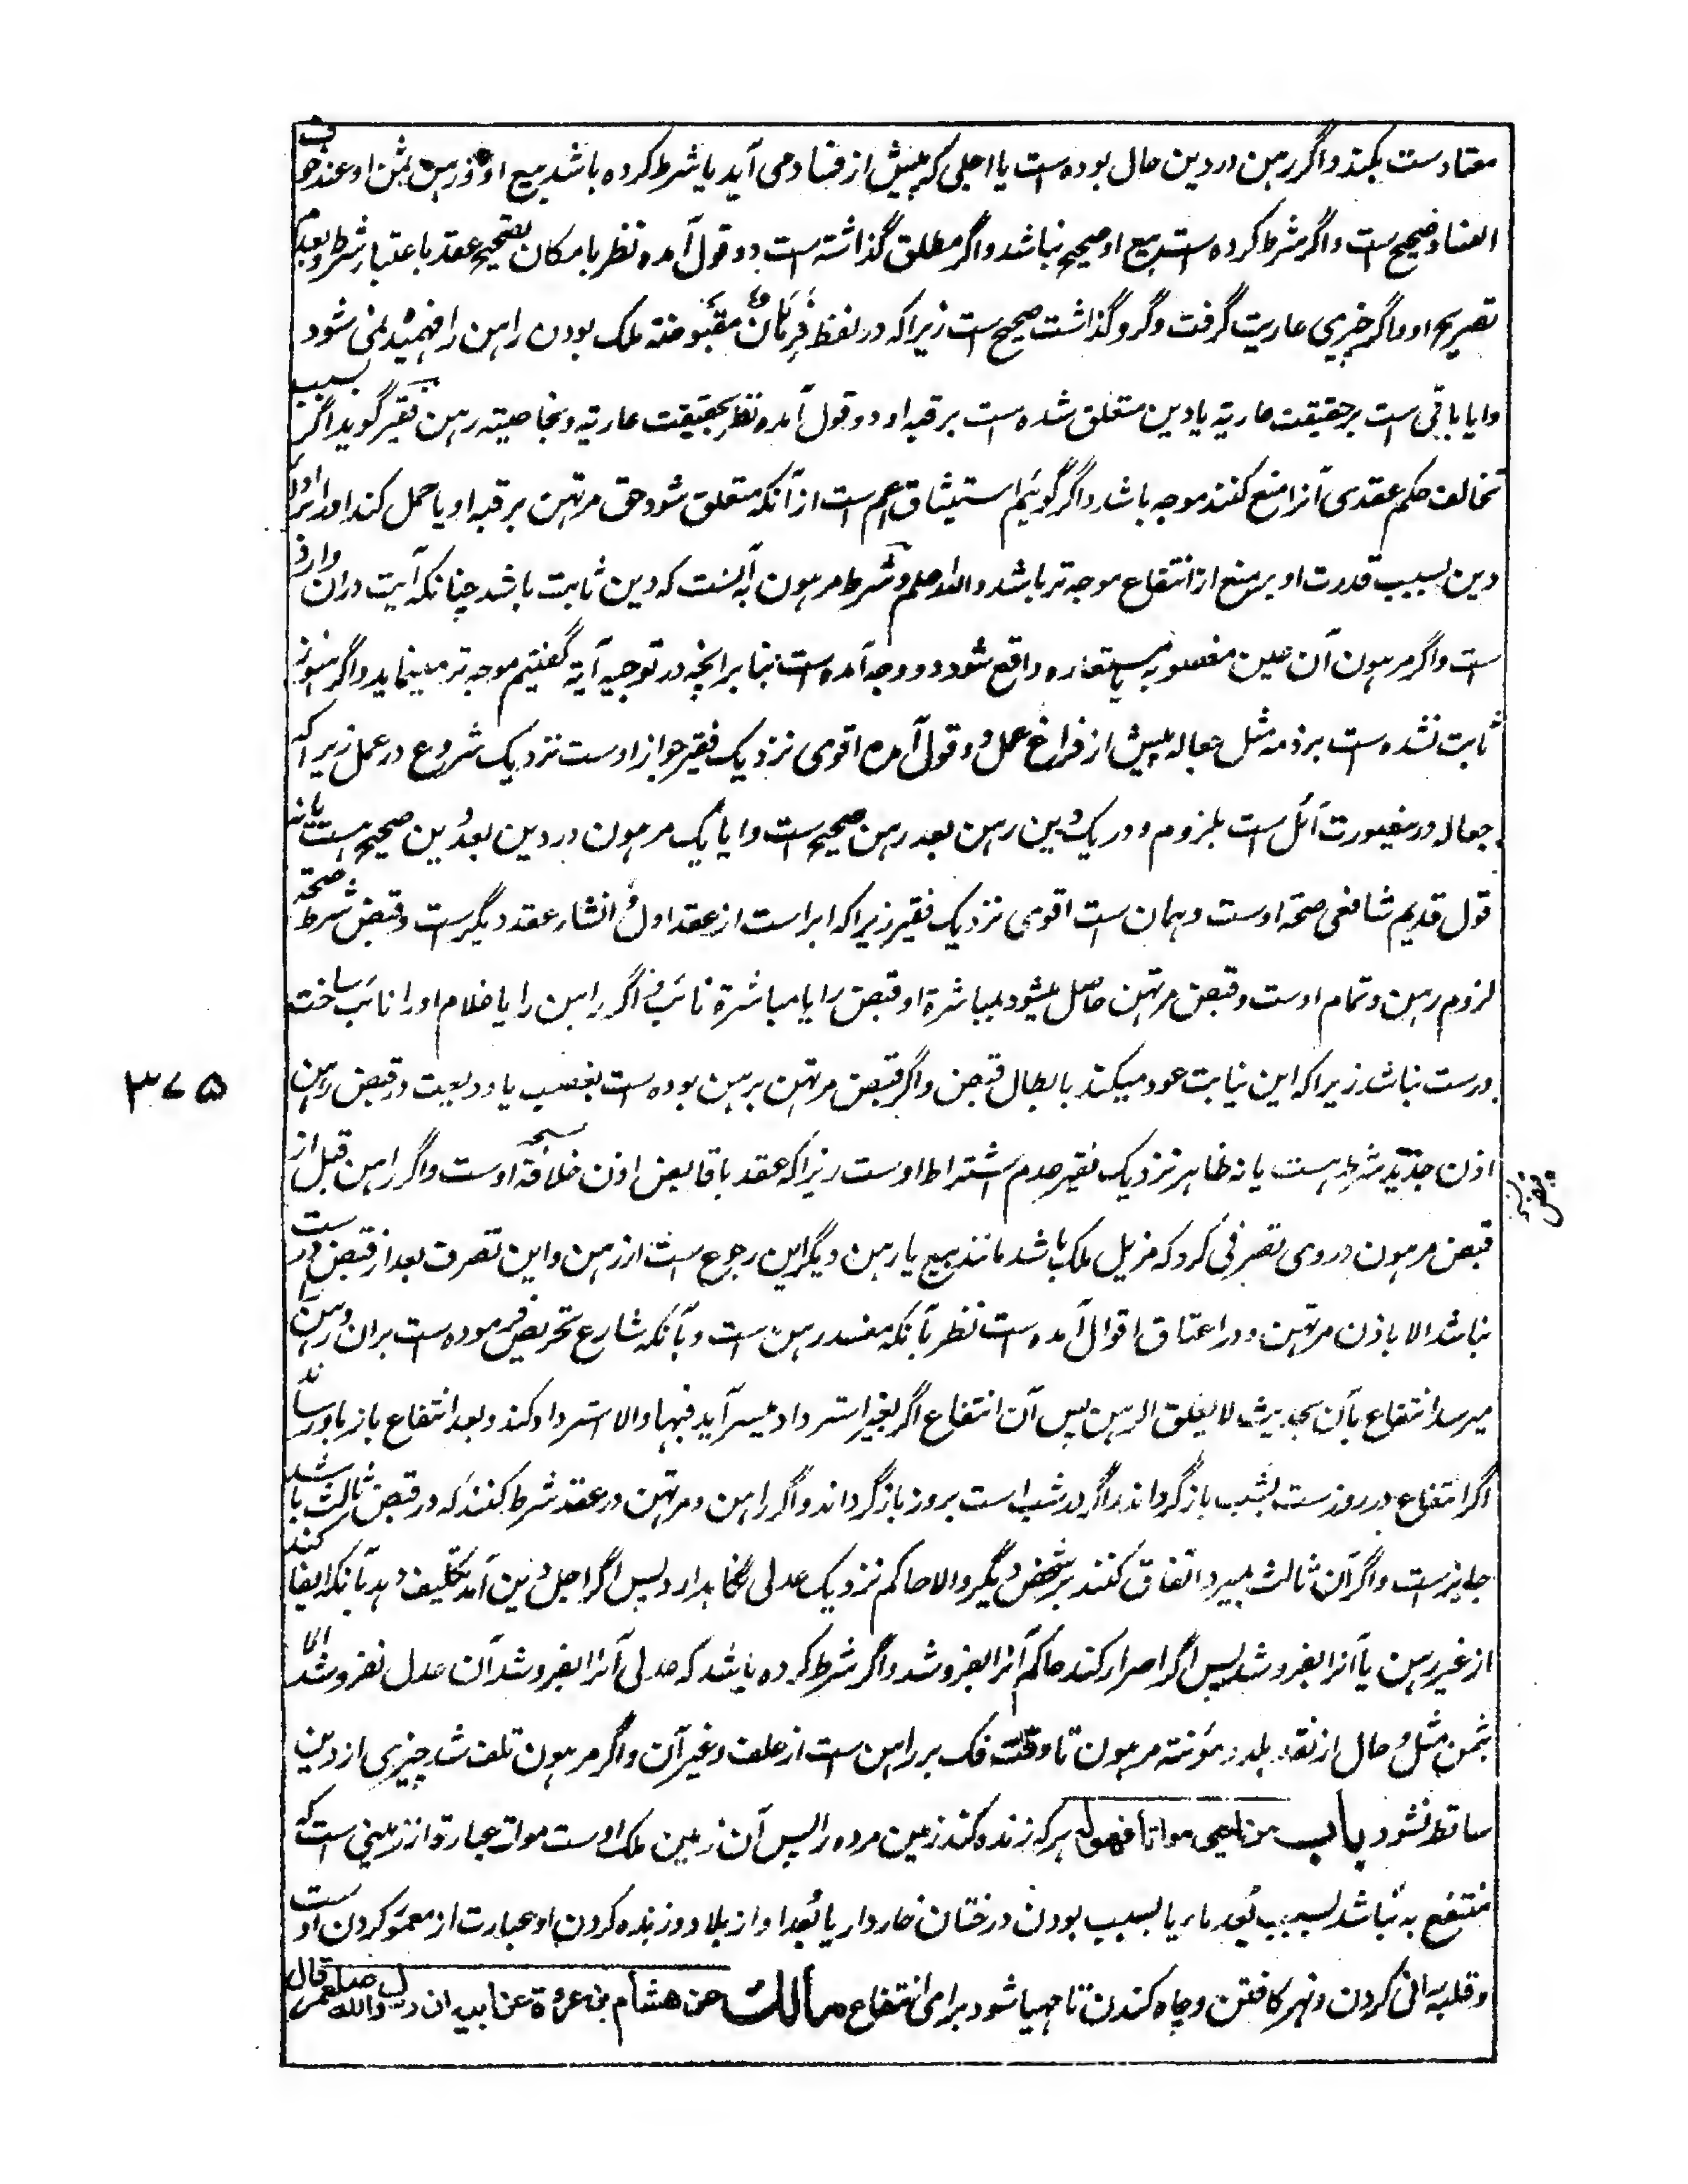 معتادست بکند و اگر رهن در دین حال بوده است یا اجلی که پیش از فساد می آید یا شرط کرده باشد بیع او و رهن ثمن او عند خوف
الفساد صحیح ست و اگر شرط کرده است بیع او صحیح نباشد و اگر مطلق گذاشته است دو قول آمده نظر بامکان تصحیح عقد باعتبار شرط و بعدم
تصریح او و اگر چیزی عاریت گرفت و گرو گذاشت صحیح ست زیرا که در لفظ فَرِهَانٌ مقبوضة ملک بودن راهن را فهمیده نمی شود
و ایا باقی است بر حقیقت عاریة یا دین متعلق شده است برقبه او دو قول آمده نظر بحقیقت عاریة و بخاصیته رهن فقیر گوید اگر بسبب
تخالف حکم عقدی آنرا منع کنند موجه باشد و اگر گوئیم استیثاق اعم ست از آنکه متعلق شود حق مرتهن برقبه او یا حمل کند او را بر ادای
دین بسبب قدرت او بر منع از انتفاع موجه تر باشد والله اعلم و شرط مرهون به آنست که دین ثابت باشد چنانکه آیت دران وارد
ست و اگر مرهون آن عین مغصوبه یا مستعاره واقع شود دو وجه آمده است بنابر انچه در توجیه آیه گفتیم موجه تر مینماید و اگر هنوز
ثابت نشده است بر ذمه مثل جعاله پیش از فراغ عمل دو قول آمده اقوی نزدیک فقیر جواز اوست نزدیک شروع در عمل زیرا که
جعاله درینصورت آئل ست بلزوم و در یک دین رهن بعد رهن صحیح ست و ایا یک مرهون در دین بعد دین صحیح هست یا نه
قول قدیم شافعی صحة اوست و همان ست اقوی نزدیک فقیر زیرا که ابراست از عقد اول و انشاء عقد دیگرست و قبض شرط صحة
لزوم رهن و تمام اوست و قبض مرتهن حاصل میشود بمباشرة او قبض را یا مباشرة نائب و اگر راهن را یا غلام او را نائب ساخت
درست نباشد زیرا که این نیابت عود میکند بابطال قبض و اگر قبض مرتهن بر رهن بوده است بغصب یا ودیعت در قبض رهن
اذن جدید شرط هست یا نه ظاهر نزدیک فقیر عدم اشتراط اوست زیرا که عقد با قابض اذن خلافة اوست و اگر راهن قبل از
قبض مرهون در وی تصرفی کرد که مزیل ملک باشد مانند بیع یا رهن دیگر این رجوع است از رهن و این تصرف بعد از قبض درست
نباشد الا باذن مرتهن و در اعتاق اقوال آمده است نظر بآنکه مفسد رهن ست و بآنکه شارع تحریض فرموده است بران و راهن را
میرسد انتفاع بآن بحدیث لا یغلق الرهن پس آن انتفاع اگر بغیر استرداد میسر آید فبها والا استرداد کند و بعد انتفاع باز باو رساند
اگر انتفاع در روزست بشب باز گرداند و اگر در شب است بروز باز گرداند و اگر راهن و مرتهن در عقد شرط کنند که در قبض ثالث باشد
جایزست و اگر آن ثالث بمیرد اتفاق کنند بر شخص دیگر والا حاکم نزدیک عدلی نگاهدارد پس اگر اجل دین آمد تکلیف دهد بآنکه ایفا کند
از غیر رهن یا آنرا بفروشد پس اگر اصرار کند حاکم آنرا بفروشد و اگر شرط کرده باشد که عدلی آنرا بفروشد آن عدل نفروشد الا
بثمن مثل و حال از نقد بلد و مؤنته مرهون تا وقت فک بر راهن ست از علف و غیر آن و اگر مرهون تلف شد چیزی از دین
ساقط نشود باب من احیی مواتا فهو له هر که زنده کند زمین مرده را پس آن زمین ملک اوست موات عبارتواز زمینی است که
منتفع به نباشد بسبب بُعد ماء یا بسبب بودن درختان خاردار یا بُعد او از بلاد و زنده کردن او عبارت از معمور کردن اوست
و قلبه رانی کردن و نهر کافتن و چاه کندن تا مهیا شود برای انتفاع مالك عن هشام بن عروة عن ابیه ان رسول الله صلعم قال من
۳۷۵